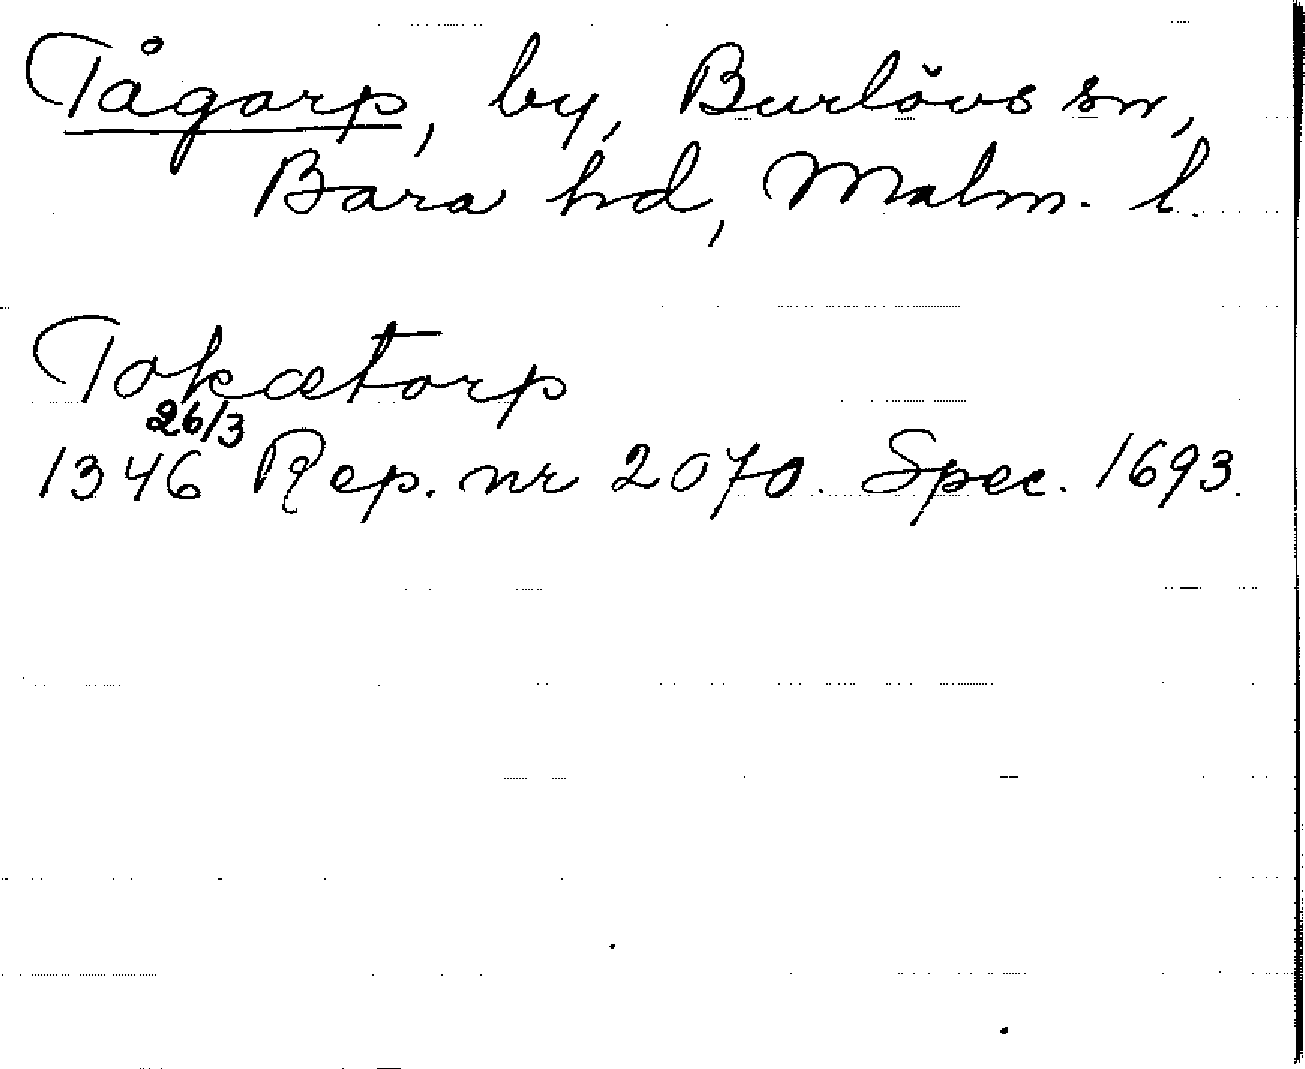 Tågarp, by, Burlövs sn,
Bara hd, Malm. l.
Tokætorp
26/3
1346 Rep. nr 2070. Spec. 1693.